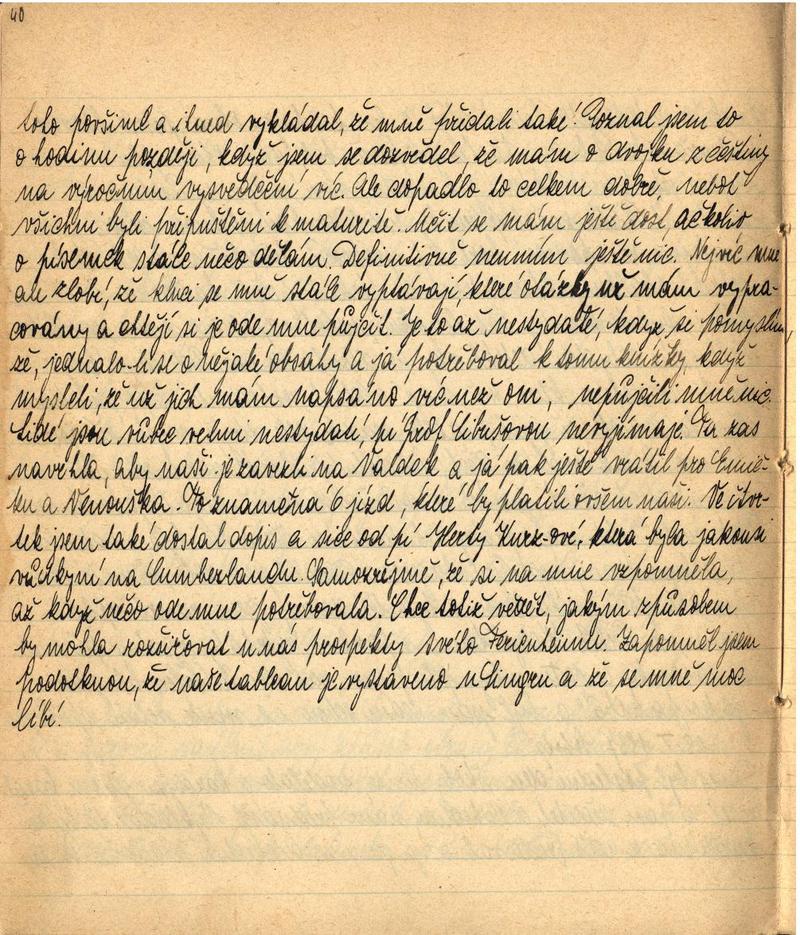 40
toto povšiml a ihned vykládal, že mně přidali také! Poznal jsem to
o hodinu později, když jsem se dozvěděl, že mám o dvojku z češtiny
na výročním vysvědčení víc. Ale dopadlo to celkem dobře, neboť
všichni byli připuštěni k maturitě. Učit se mám ještě dost, ačkoliv
o písemek stále něco dělám. Definitivně neumím ještě nic. Nejvíc mne
an zlobí, že kluci se mně stále vyptávají, které otázky už mám vypra-
covány a chtějí si je ode mne půjčit. Je to až nestydaté, když si pomyslím,
že, jednalo-li se o nějaké obsahy a já potřeboval k tomu knížky, když
mysleli, že už jich mám napsáno víc než oni, nepůjčili mně nic.
Lidé jsou vůbec velmi nestydatí, pí Prof. Libušovou nevyjímaje. Ta zas
navrhla, aby naši je zavezli na Valdek a já pak ještě vrátil pro Emič-
ku a Venouška. To znamená 6 jízd, které by platili ovšem naši. Ve čtvr-
tek jsem také dostal dopis a sice od pí Herty Kurz-ové, která byla jakousi
vůdkyní na Cumberlandu. Samozřejmě, že si na mne vzpomněla,
až když něco ode mne potřebovala. Chce totiž vědět, jakým způsobem
by mohla rozšiřovat u nás prospekty svého Ferienheimu. Zapomněl jsem
podotknou, že naše tableau je vystaveno u Singru a že se mně moc
líbí!